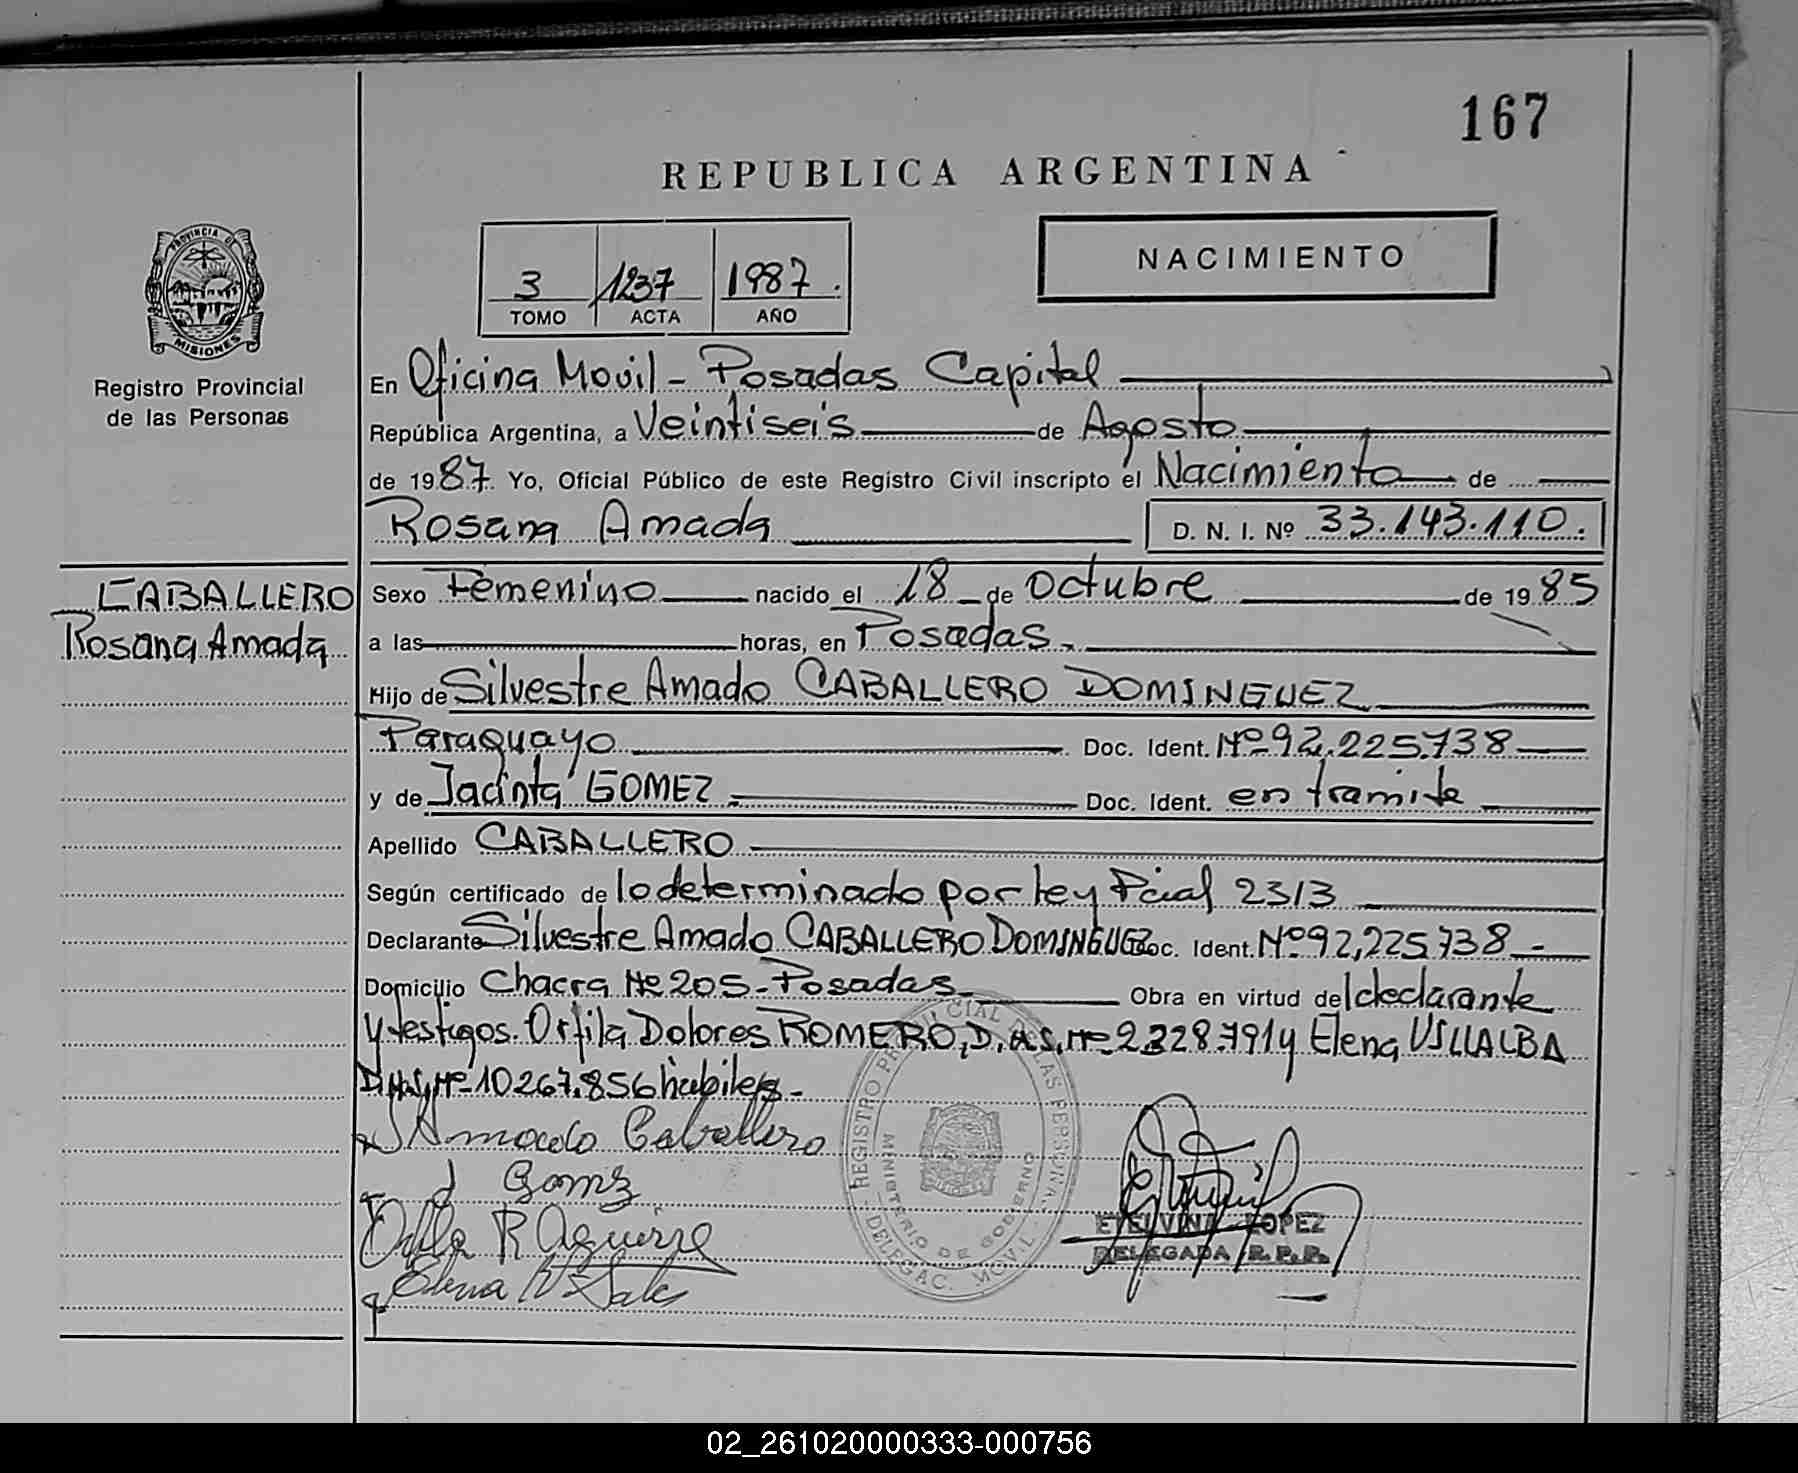 167
REPUBLICA ARGENTINA
PROVINCIA DE
MISIONES
Registro Provincial
de las Personas
3 1237 1987.
TOMO ACTA AÑO
NACIMIENTO
En Oficina Movil - Posadas Capital
República Argentina, a Veintiseis de Agosto
de 1987. Yo, Oficial Público de este Registro Civil inscripto el Nacimiento de
Rosana Amada D. N. I. Nº 33.143.110.
CABALLERO
Rosana Amada
Sexo Femenino nacido el 18 de Octubre de 1985
a las horas, en Posadas.
Hijo de Silvestre Amado CABALLERO DOMINGUEZ
Paraguayo Doc. Ident. Nº 92.225.738
y de Jacinta GOMEZ Doc. Ident. en tramite
Apellido CABALLERO
Según certificado de lo determinado por ley Pcial 2313
Declarante Silvestre Amado CABALLERO DOMINGUEZ Doc. Ident. Nº 92,225.738 -
Domicilio Chacra Nº 205 - Posadas Obra en virtud del declarante
y testigos. Orfila Dolores ROMERO, Nº 2.328.791 y Elena VILLALBA
Nº 10267.856 habiles -
Amado Caballero
J Gomez
R Aguirre
Elena
REGISTRO PROVINCIAL DE LAS PERSONAS
MINISTERIO DE GOBIERNO
DELEGAC. MOVIL
ETELVINA LOPEZ
DELEGADA R.P.P.
02_261020000333-000756